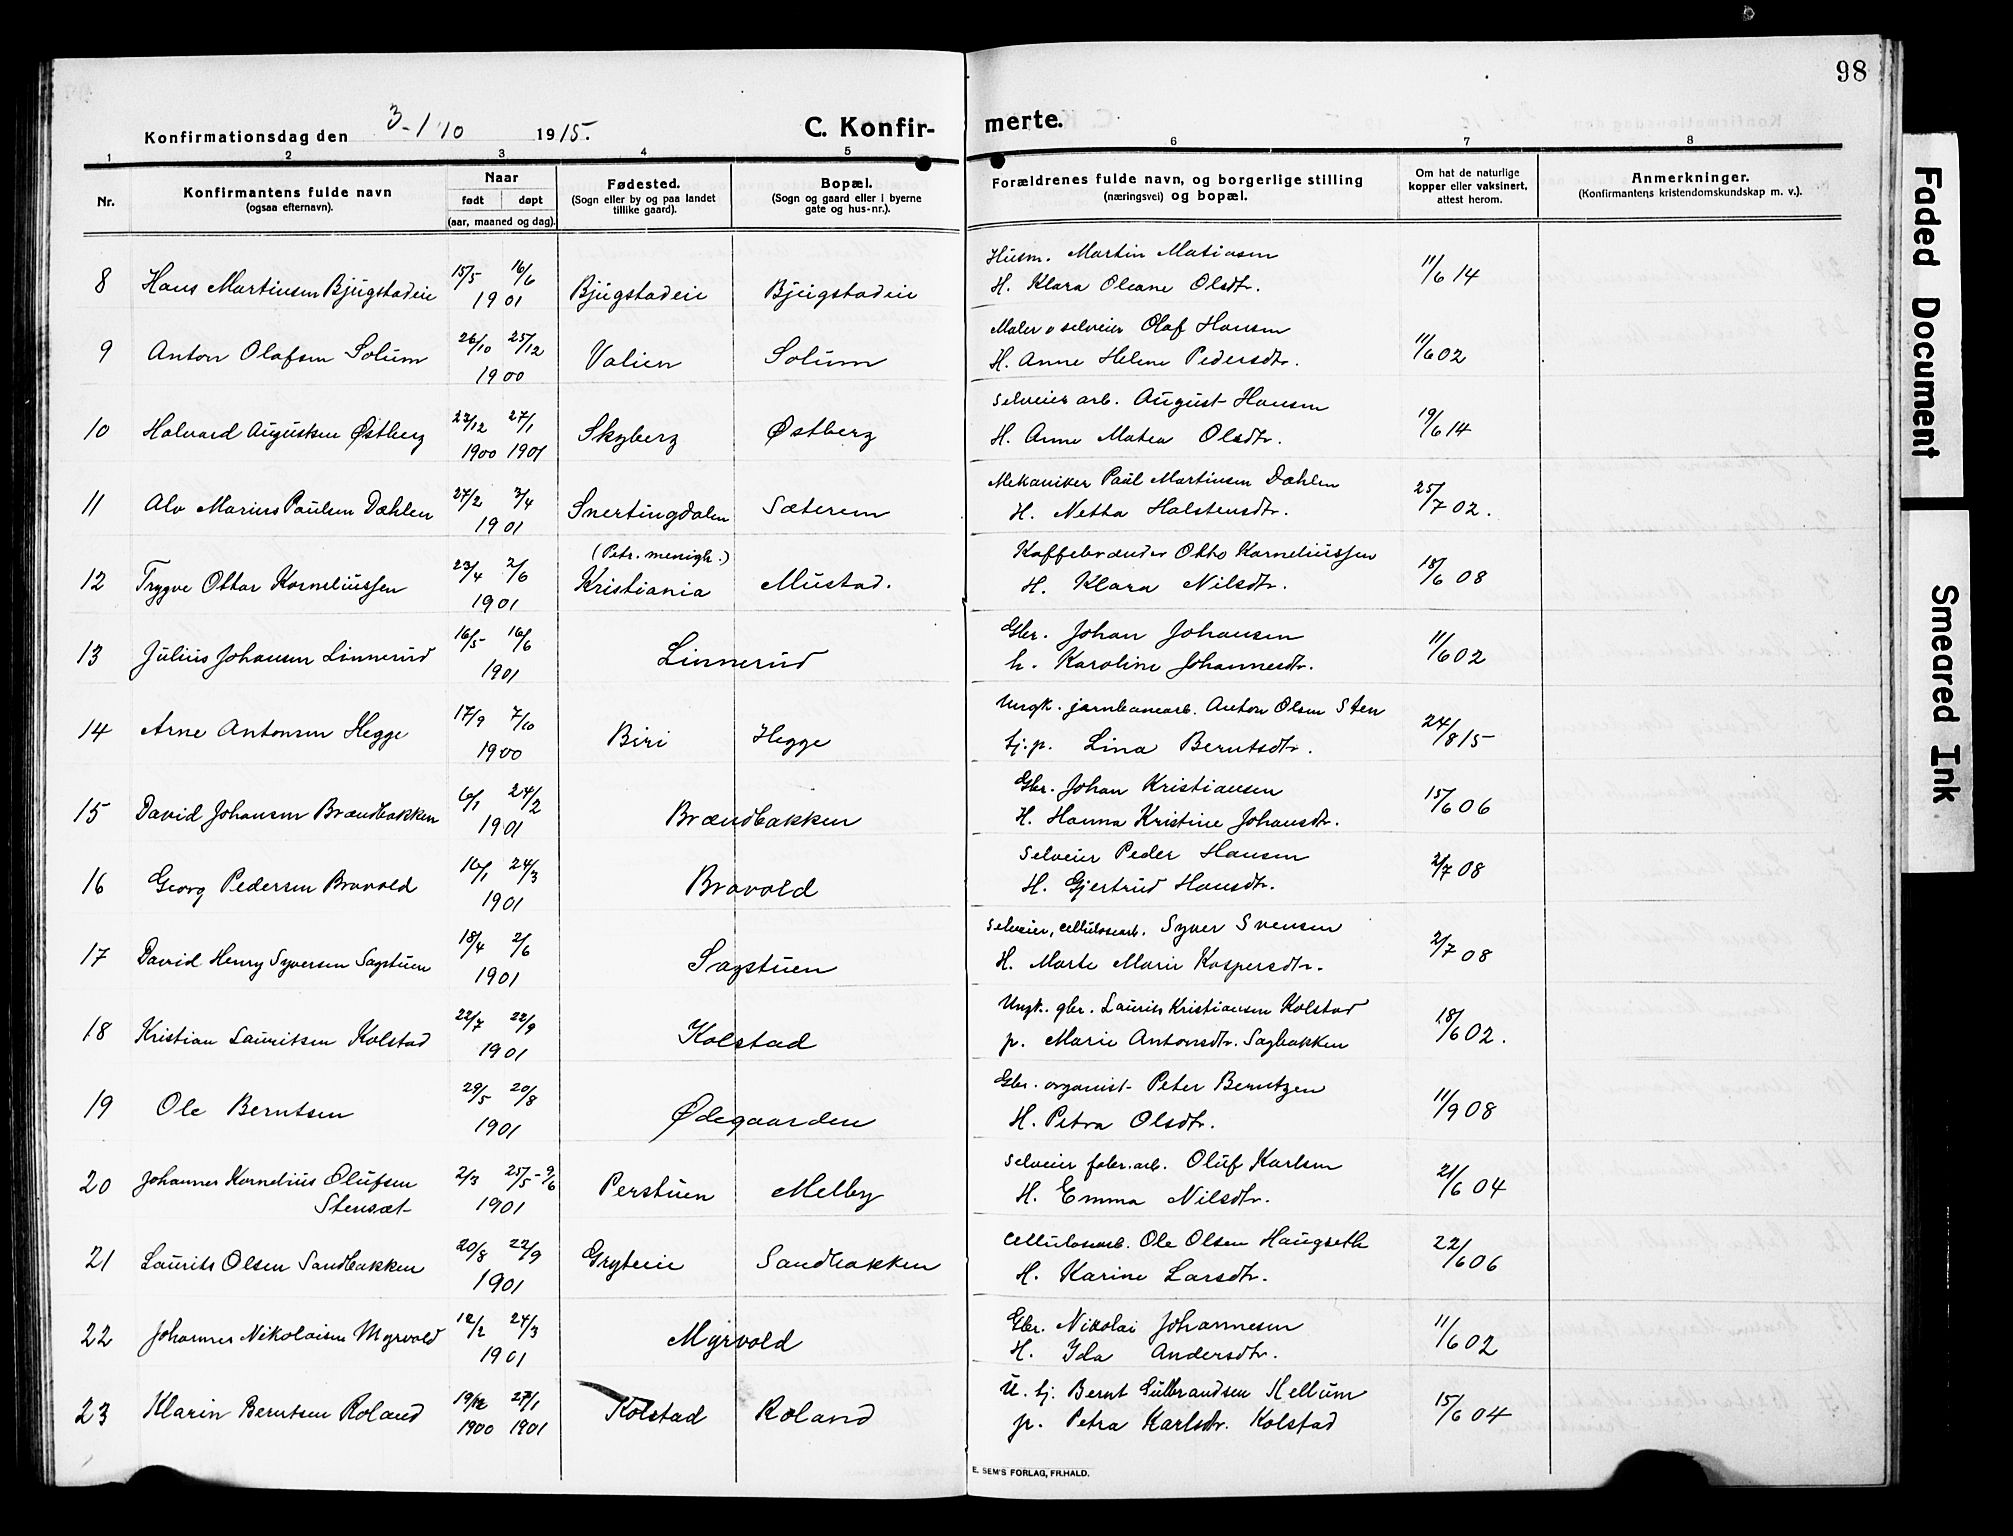 98
Konfirmationsdag den 3-/10 1915.
C. Konfir-merte.
1 2 3 4 5 6 7 8
Nr.
Konfirmantens fulde navn
(ogsaa efternavn).
Naar
født døpt
(aar, maaned og dag).
Fødested.
(Sogn eller by og paa landet
tillike gaard).
Bopæl.
(Sogn og gaard eller i byerne
gate og hus-nr.).
Forældrenes fulde navn, og borgerlige stilling
(næringsvei) og bopæl.
Om hat de naturlige
kopper eller vaksinert,
attest herom.
Anmerkninger.
(Konfirmantens kristendomskundskap m. v.).
Husm. Martin Matiasen
8 Hans Martinsen Bjugstadeie 15/5 16/6 1901 Bjugstadeie Bjugstadeie 11/6 14
H. Klara Oleane Olsdtr.
Maler o selveier Olaf Hansen
9 Anton Olafsen Solum 26/10 25/12 1900 Valien Solum 11/6 02
H. Anne Helene Pedersdtr.
Selveier arb. August Hansen
10 Halvard Augustsen Østberg 23/12 27/1 1900 1901 Skyberg Østberg 19/6 14
H. Anne Matea Olsdtr.
Mekaniker Paul Martinsen Dæhlen
11 Alv Marius Paulsen Dæhlen 27/2 7/4 1901 Snertingdalen Sæterem 25/7 02.
H. Netta Halstensdtr.
(Petr. menigh.)
Kaffebrænder Otto Korneliussen
12 Trygve Ottar Korneliussen 23/4 2/6 1901 Kristiania Mustad. 18/6 08
H. Klara Nilsdtr.
Gbr. Johan Johansen
13 Julius Johansen Linnerud 16/5 16/6 1901 Linnerud 11/6 02
h. Karoline Johannesdtr.
Ungk. jernbanearb. Anton Olsen Sten
14 Arne Antonsen Hegge 17/9 7/10 1900 Biri Hegge 24/8 15
tj. p. Lina Berntsdtr.
Gbr. Johan Kristiansen
15 David Johansen Brændbakken 6/1 24/2 1901 Brændbakken 15/6 06
H. Hanna Kristine Johansdtr.
Selveier Peder Hansen
16 Georg Pedersen Bravold 16/1 24/3 1901 Bravold 2/7 08
H. Gjertrud Hansdtr.
Selveier, cellulosearb. Syver Svensen
17 David Henry Syversen Sagstuen 18/4 2/6 1901 Sagstuen 2/7 08
H. Marte Marie Kaspersdtr.
Ungk. gbr. Laurits Kristiansen Kolstad
18 Kristian Lauritsen Kolstad 22/7 22/9 1901 Kolstad 18/6 02.
p. Marie Antonsdtr. Sagbakken
Gbr. organist Peter Berntzen
19 Ole Berntsen 29/5 20/8 1901 Ødegaarden 11/9 08
H. Petra Olsdtr.
Selveier fabr. arb. Oluf Karlsen
20 Johannes Kornelius Olufsen 2/3 25/5-9/6 1901 Perstuen Melby 21/6 04
Stensæt
H. Emma Nilsdtr.
Cellulosearb. Ole Olsen Haugseth
21 Laurits Olsen Sandbakken 20/8 22/9 1901 Gryteeie Sandbakken 22/6 06
H. Karine Larsdtr.
Gbr. Nikolai Johannesen
22 Johannes Nikolaisen Myrvold 12/2 24/3 1901 Myrvold 11/6 02
H. Ida Andersdtr.
U. tj. Bernt Gulbrandsen Hellum
23 Klarin Berntsen Roland 19/12 27/1 1900 1901 Kolstad Roland 15/6 04
p. Petra Karlsdtr. Kolstad
E. SEM'S FORLAG, FR.HALD.
Faded Document
Smeared Ink